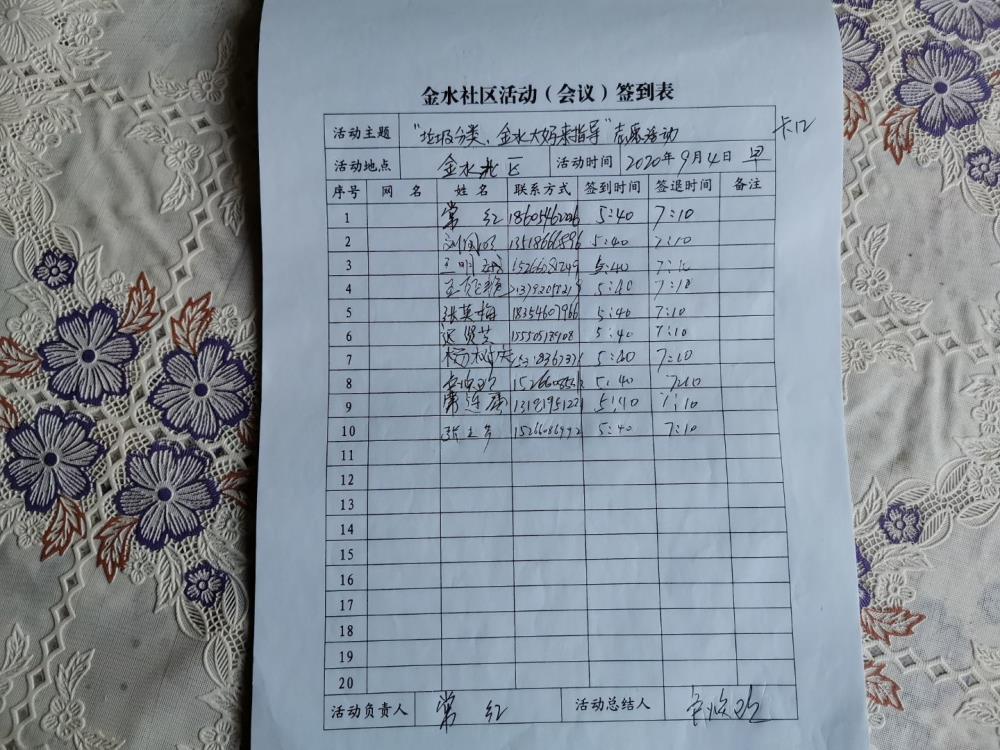 金水社区活动（会议）签到表
卡口
活动主题 "垃圾分类、金水大妈来指导"志愿活动
活动地点 金水北区 活动时间 2020年9月4日 早
序号 网名 姓名 联系方式 签到时间 签退时间 备注
1 常红 18605462226 5:40 7:10
2 13518666896 5:40 7:10
3 王明 15266081249 5:40 7:10
4 5:40 7:10
5 张英梅 18354607966 5:40 7:10
6 迟贤芝 15550518908 5:40 7:10
7 5:40 7:10
8 5:40 7:10
9 常连 5:40 7:10
10 张 15266086992 5:40 7:10
11
12
13
14
15
16
17
18
19
20
活动负责人 常红 活动总结人